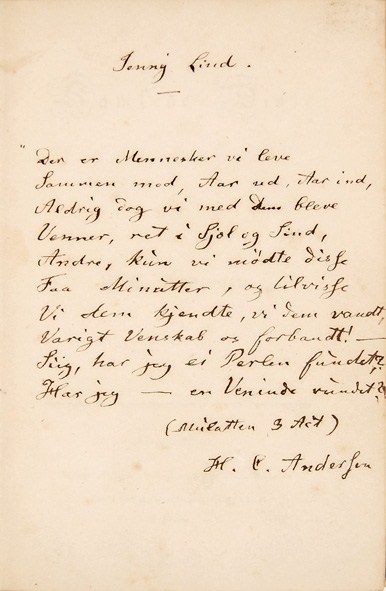 Jenny Lind.
"Der er Mennesker vi leve
Sammen med, Aar ud, Aar ind,
Aldrig dog vi med dem bleve
Venner, ret i Sjæl og Sind,
Andre, kun vi mødte disse
Faa Minutter, og tilvisse
Vi dem kjendte, vi dem vandt,
Varigt Venskab os forbandt! —
Siig, har jeg ei Perlen fundet?
Har jeg — en Veninde vundet?"
(Mulatten 3 Act)
H. C. Andersen